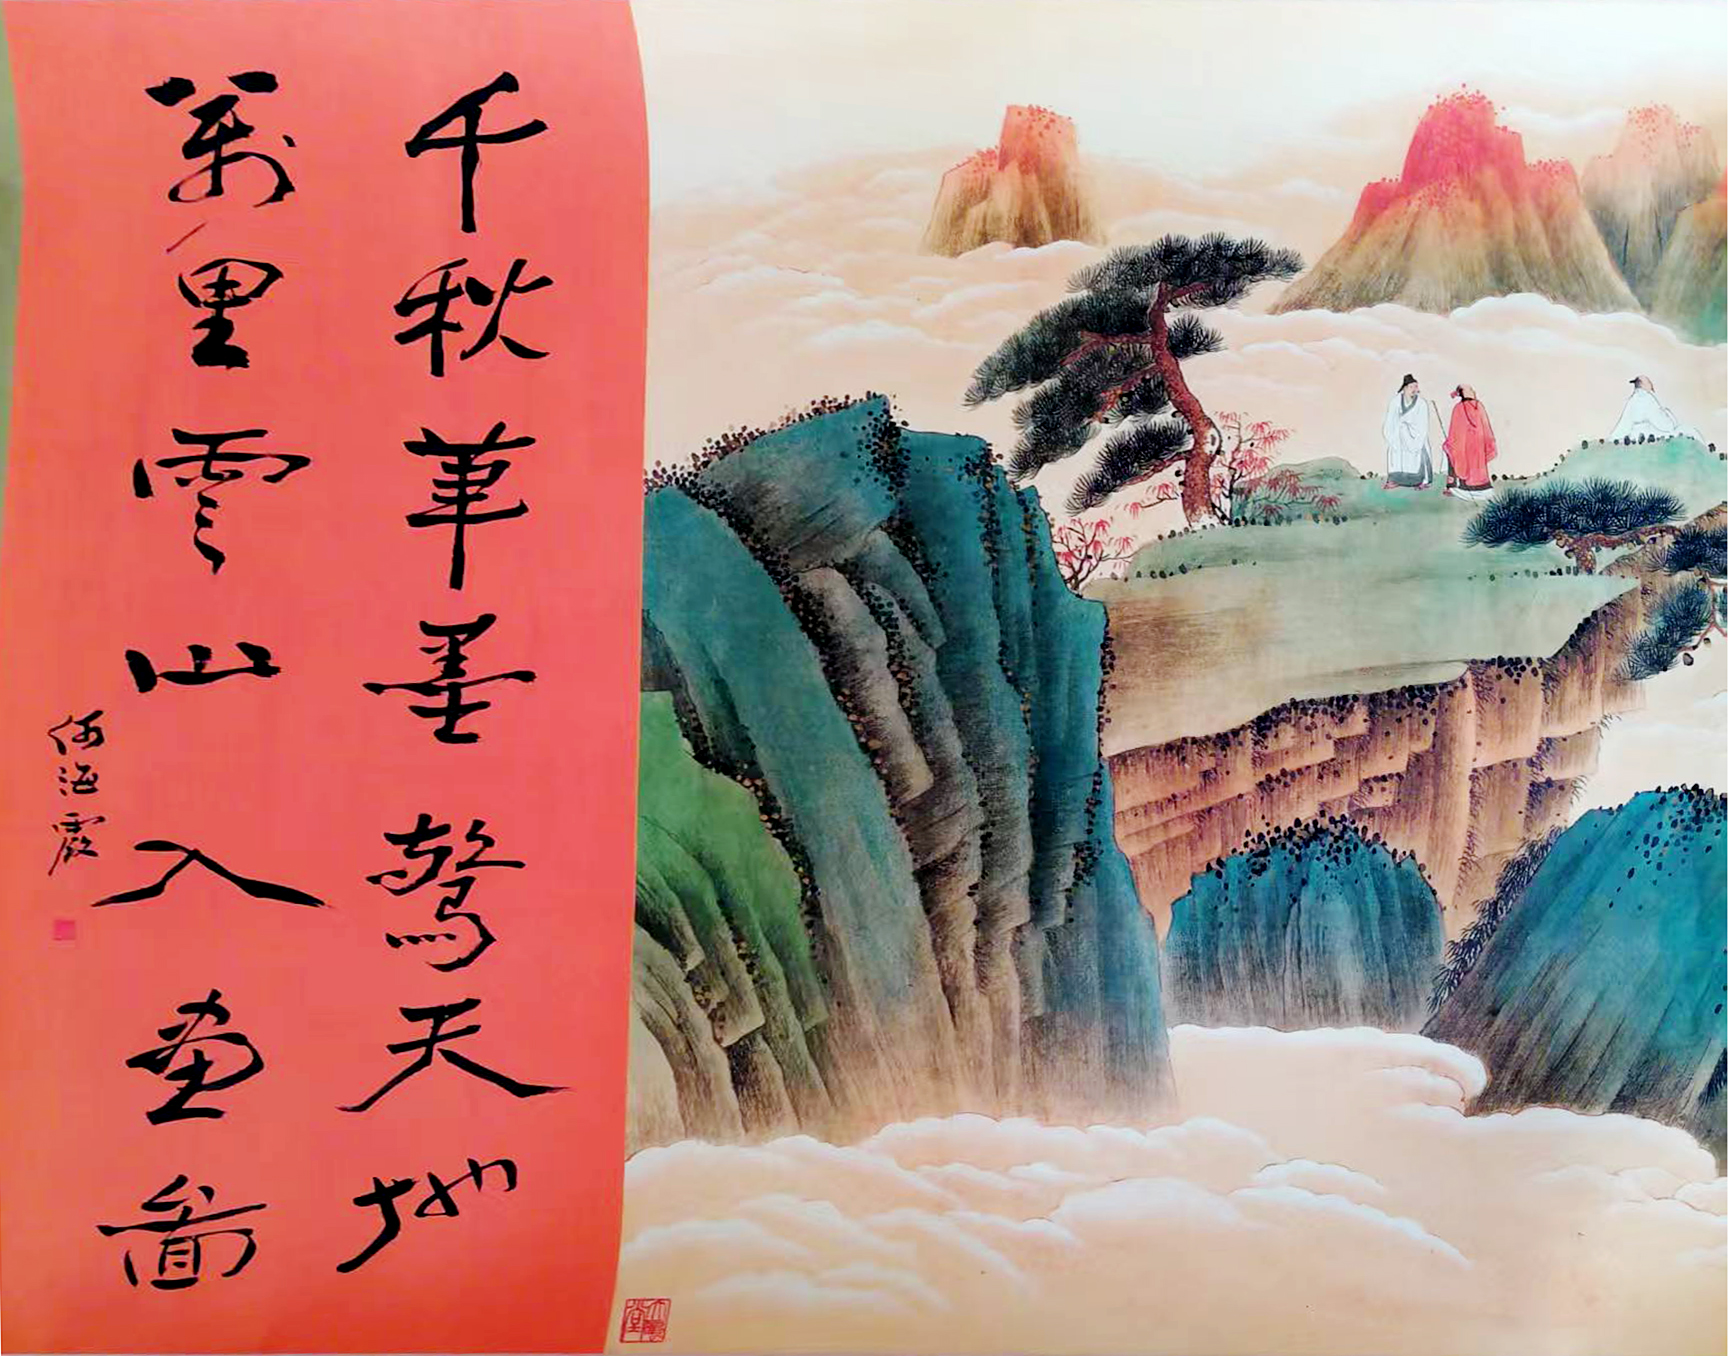 千秋筆墨驚天地
萬里雲山入畫圖
何海霞
大風堂